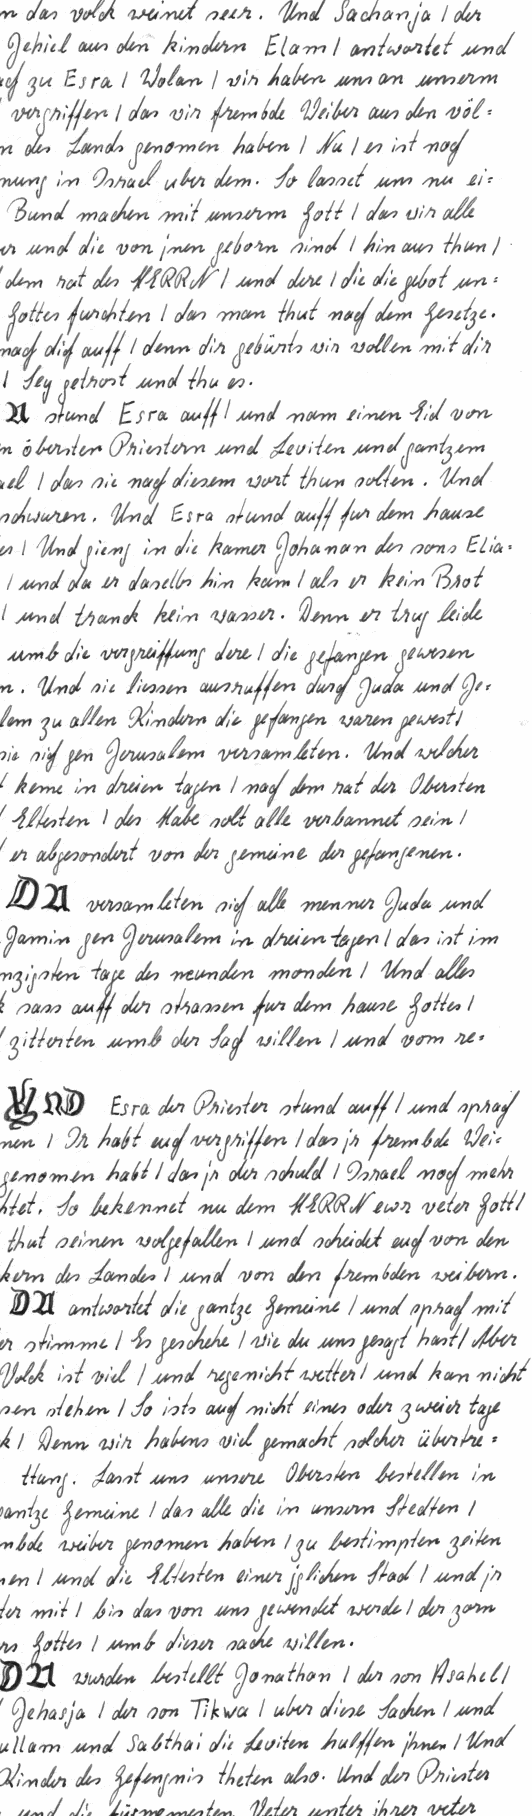 n das volck weinet seer. Und Sachanja / der
Jehiel aus den kindern Elam / antwortet und
ach zu Esra / Wolan / wir haben uns an unserm
vergriffen / das wir frembde Weiber aus den völ=
n des Lands genomen haben / Nu / es ist noch
nung in Israel uber dem. So lasset uns nu ei=
Bund machen mit unserm Gott / das wir alle
er und die von jnen geborn sind / hin aus thun /
dem rat des HERRN / und dere / die die gebot un=
Gottes furchten / das man thut nach dem Gesetze.
mach dich auff / denn dir gebürts wir wollen mit dir
/ Sey getrost und thu es.
A stund Esra auff / und nam einen Eid von
n öbersten Priestern und Leviten und gantzem
ael / das sie nach diesem wort thun solten. Und
schwuren. Und Esra stund auff fur dem hause
es / Und gieng in die kamer Johanan des sons Elia=
/ und da er daselbs hin kam / als er kein Brot
/ und tranck kein wasser. Denn er trug leide
umb die vergreiffung dere / die gefangen gewesen
n. Und sie liessen ausruffen durch Juda und Je=
lem zu allen Kindern die gefangen waren gewest /
sie sich gen Jerusalem versamleten. Und welcher
t keme in dreien tagen / nach dem rat der Obersten
Eltesten / des Habe solt alle verbannet sein /
er abgesondert von der gemeine der gefangenen.
DA versamleten sich alle menner Juda und
Jamin gen Jerusalem in dreien tagen / das ist im
nzigsten tage des neunden monden / Und alles
k sass auff der strassen fur dem hause Gottes /
zitterten umb der Sach willen / und vom re=
UND Esra der Priester stund auff / und sprach
nen / Ir habt euch vergriffen / das jr frembde Wei=
genomen habt / das jr der schuld / Israel noch mehr
htet. So bekennet nu dem HERRN ewr veter Gott /
thut seinen wolgefallen / und scheidet euch von den
kern des Landes / und von den frembden weibern.
DA antwortet die gantze Gemeine / und sprach mit
er stimme / Es geschehe / wie du uns gesagt hast / Aber
Volck ist viel / und regenicht wetter / und kan nicht
sen stehen / So ists auch nicht eines oder zweier tage
k / Denn wir habens viel gemacht solcher übertre=
ttung. Lasst uns unsere Obersten bestellen in
gantze Gemeine / das alle die in unsern Stedten /
mbde weiber genomen haben / zu bestimpten zeiten
men / und die Eltesten einer jglichen Stad / und jr
ter mit / bis das von uns gewendet werde / der zorn
rs Gottes / umb dieser sache willen.
DA wurden bestellt Jonathan / der son Asahel /
Jehasja / der son Tikwa / uber diese Sachen / und
ullam und Sabthai die Leviten hulffen jhnen / Und
Kinder des Gefengnis theten also. Und der Priester
und die fürnemesten Veter unter ihrer veter